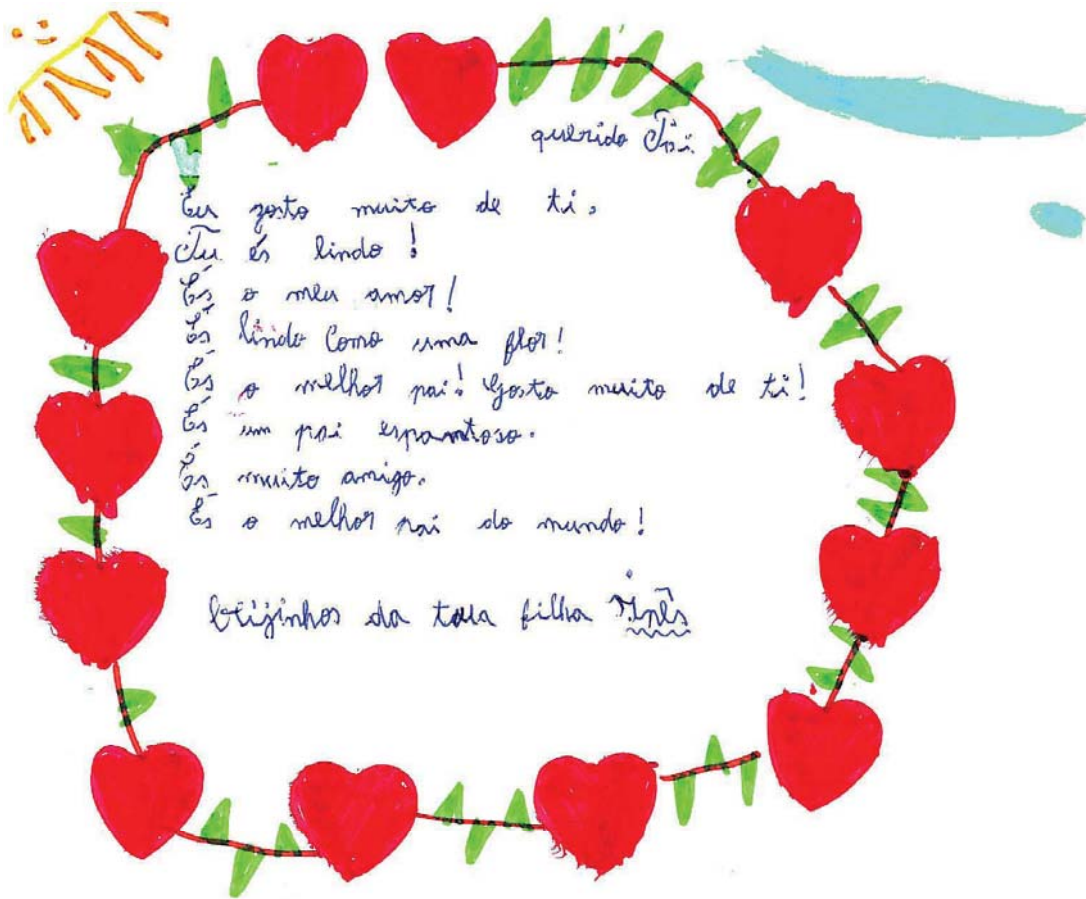 querido Pai.
Eu gosto muito de ti.
Tu és lindo!
És o meu amor!
És lindo como uma flor!
És o melhor pai! Gosto muito de ti!
És um pai espantoso.
És muito amigo.
És o melhor pai do mundo!
beijinhos da tua filha Inês